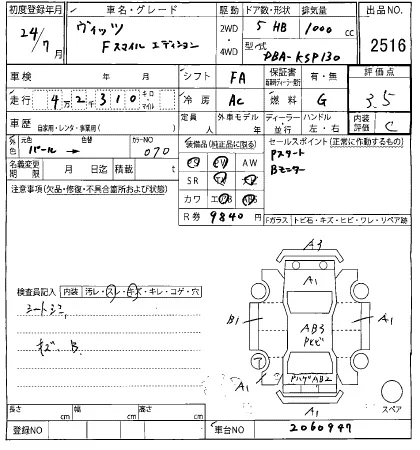 初度登録年月 車名・グレード 駆動 ドア数・形状 排気量 出品NO
24/7月 ヴィッツ 2WD・4WD 5 HB 1000cc 2516
F スマイル エディション 型式 DBA-KSP130
車検 年 月 シフト FA 保証書 有・無 評価点
走行 4万2千310 キロ・マイル 冷房 AC 燃料 G 3.5
車歴 自家用・レンタ・事業用( ) 定員 人 外車モデル 年 ディーラー・並行 ハンドル 左・右 内装評価 C
外色 元色 パール→ 色替 カラーNO 070 装備品(純正品に限る) セールスポイント(正常に作動するもの)
名義変更期限 月 日迄 積載 t AW Pスタート
注意事項(欠品・修復・不具合箇所および状態) SR Bモニター
カワ
R券 9840円 Fガラス トビ石・キズ・ヒビ・ワレ・リペア跡
A3
A1
検査員記入 内装 汚レ・スレ・キズ・キレ・コゲ・穴
シートシミ B1 A1
AB3
キズ、B.
AB2
A1
A1 スペア
長さ cm 幅 cm 高さ cm
登録NO 車台NO 2060947